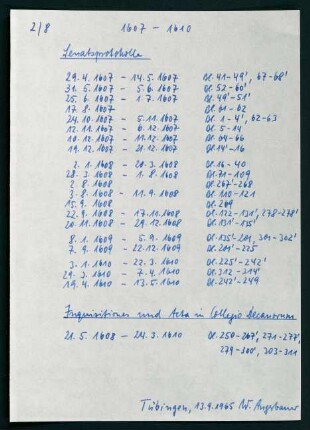 2/8 1607 - 1610
Senatsprotokolle
29. 4. 1607 - 14. 5. 1607 Bl. 41-49', 67-68'
31. 5. 1607 - 5. 6. 1607 Bl. 52-60',
25. 6. 1607 - 1. 7. 1607 Bl. 49'-51'
17. 8. 1607 Bl. 61-62
24. 10. 1607 - 5. 11. 1607 Bl. 1-4', 62-63
12. 11. 1607 - 6. 12. 1607 Bl. 5-14
10. 12. 1607 - 11. 12. 1607 Bl. 64-66
19. 12. 1607 - 21. 12. 1607 Bl. 14'-16
2. 1. 1608 - 20. 3. 1608 Bl. 16-40
28. 3. 1608 - 1. 8. 1608 Bl. 71-109
2. 8. 1608 Bl. 267'-268
3. 8. 1608 - 11. 9. 1608 Bl. 110-121
15. 9. 1608 Bl. 269
22. 9. 1608 - 17. 10. 1608 Bl. 122-131', 278-278'
20. 11. 1608 - 29. 12. 1608 Bl. 131'-135'
8. 1. 1609 - 5. 9. 1609 Bl. 135'-201, 301-302'
7. 9. 1609 - 22. 12. 1609 Bl. 201'-225
3. 1. 1610 - 22. 3. 1610 Bl. 225'-242'
29. 3. 1610 - 7. 4. 1610 Bl. 312-314'
19. 4. 1610 - 13. 5. 1610 Bl. 242'-249
Inquisitiones und Acta in Collegio Decanorum
21. 5. 1608 - 24. 3. 1610 Bl. 250-267', 271-277',
279-300', 303-311
Tübingen, 13. 9. 1965 W. Angerbauer